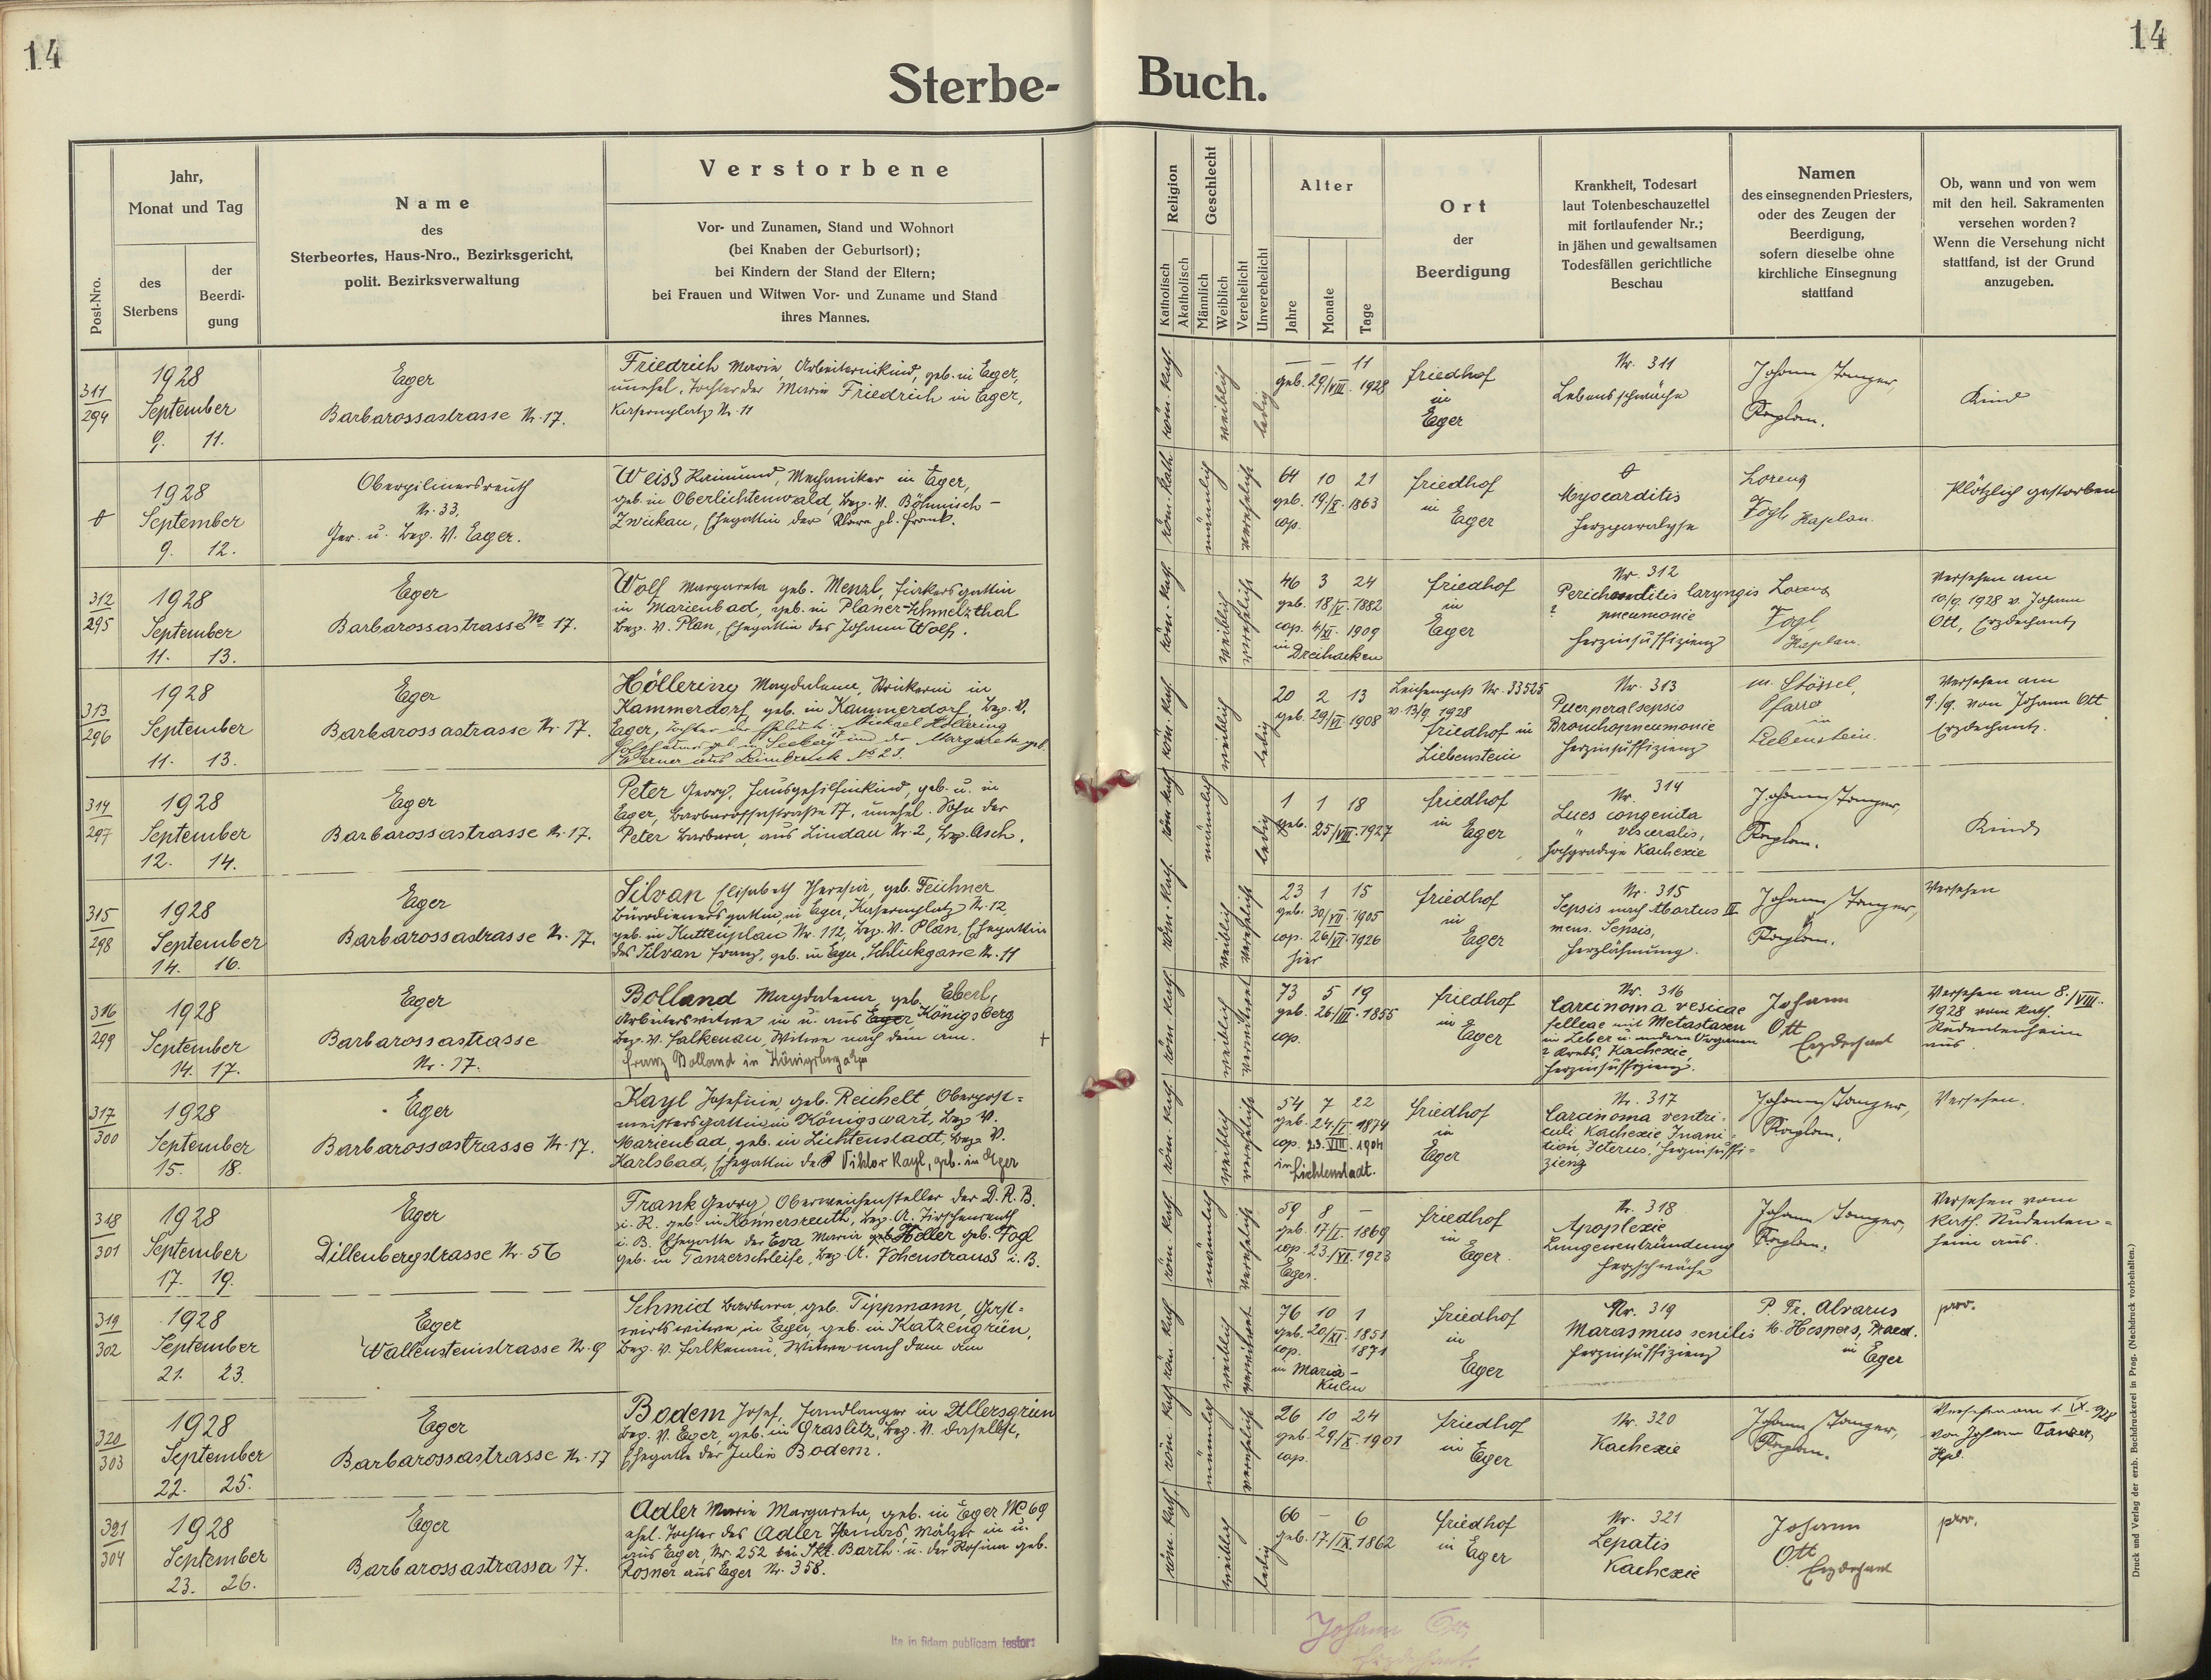 14
14
Sterbe-
Buch.
Post-Nro.
Jahr,
Monat und Tag
des
Sterbens
der
Beerdi-
gung
Name
des
Sterbeortes, Haus-Nro., Bezirksgericht,
polit. Bezirksverwaltung
Verstorbene
Vor- und Zunamen, Stand und Wohnort
(bei Knaben der Geburtsort);
bei Kindern der Stand der Eltern;
bei Frauen und Witwen Vor- und Zuname und Stand
ihres Mannes.
Religion
Katholisch
Akatholisch
Geschlecht
Männlich
Weiblich
Verehelicht
Unverehelicht
Alter
Jahre
Monate
Tage
Ort
der
Beerdigung
Krankheit, Todesart
laut Totenbeschauzettel
mit fortlaufender Nr.;
in jähen und gewaltsamen
Todesfällen gerichtliche
Beschau
Namen
des einsegnenden Priesters,
oder des Zeugen der
Beerdigung,
sofern dieselbe ohne
kirchliche Einsegnung
stattfand
Ob, wann und von wem
mit den heil. Sakramenten
versehen worden?
Wenn die Versehung nicht
stattfand, ist der Grund
anzugeben.
311
294
1928
September
9. 11.
Eger
Barbarossastrasse Nr. 17.
Friedrich Marie, Arbeiterinkind, geb. in Eger,
unehel. Tochter der Marie Friedrich in Eger,
Kasernplatz Nr. 11
röm. kath.
weiblich
ledig
— — 11
geb. 29/VIII. 1928
Friedhof
in
Eger
Nr. 311
Lebensschwäche
Johann Tanzer,
Kaplan.
Kind
1928
September
9. 12.
Oberpilmersreuth
Nr. 33,
Ger. u. Bez. V. Eger.
Weiss Raimund, Mechaniker in Eger,
geb. in Oberlichtenwald, Bez. V. Böhmisch-
Zwickau, Ehegattin der Klara gb. Frank.
röm. kath.
männlich
verehelicht
64 10 21
geb. 19/X. 1863
cop.
Friedhof
in
Eger
Myocarditis
Herzparalyse
Lorenz
Fogl, Kaplan.
Plötzlich gestorben
312
295
1928
September
11. 13.
Eger
Barbarossastrasse No 17.
Wolf Margareta geb. Menzl,
in Marienbad, geb. in Planer-Schmelzthal
Bez. V. Plan, Ehegattin des Johann Wolf.
röm. kath.
weiblich
verehelicht
46 3 24
geb. 18/V. 1882
cop. 4/XI. 1909
in Dreihacken
Friedhof
in
Eger
Nr. 312
Perichondritis laryngis
? pneumonie
Herzinsuffizienz
Lorenz
Fogl,
Kaplan.
Versehen am
10/9. 1928 v. Johann
Ott, Erzdechant
313
296
1928
September
11. 13.
Eger
Barbarossastrasse Nr. 17.
Höllering Magdalena, in
Kammerdorf, geb. in Kammerdorf, Bez. V.
Eger, Tochter der Eheleute: Michael Höllering
geb. in Seeberg 17 und der Margareta geb.
Werner aus No 23.
röm. kath.
weiblich
ledig
20 2 13
geb. 29/VI. 1908
Leichenpaß Nr. 33525
v. 13/9. 1928
Friedhof in
Liebenstein
Nr. 313
Puerperalsepsis
Bronchopneumonie
Herzinsuffizienz
M. Stössel,
Pfarrer
in
Liebenstein.
Versehen am
9./9. von Johann Ott
Erzdechant.
314
297
1928
September
12. 14.
Eger
Barbarossastrasse Nr. 17.
Peter Georg, Hausgehilfinkind, geb. u. in
Eger, Barbarossastraße 17, unehel. Sohn der
Peter Barbara, aus Lindau Nr. 2, Bez. Asch.
röm. kath.
männlich
ledig
1 1 18
geb. 25/VII. 1927
Friedhof
in
Eger
Nr. 314
Lues congenita
" visceralis,
hochgradige Kachexie
Johann Tanzer,
Kaplan.
Kind
315
298
1928
September
14. 16.
Eger
Barbarossastrasse Nr. 17.
Silvan Elisabeth Theresia, geb. Teichner
Bürodienersgattin, in Eger, Kasernplatz Nr. 12,
geb. in Kuttenplan Nr. 112, Bez. V. Plan, Ehegattin
des Silvan Franz, geb. in Eger, Schlickgasse Nr. 11
röm. kath.
weiblich
verehelicht
23 1 15
geb. 30/VII. 1905
cop. 26/VI. 1926
hier
Friedhof
in
Eger
Nr. 315
Sepsis nach Abortus III
mens. Sepsis,
Herzlähmung.
Johann Tanzer,
Kaplan.
Versehen
316
299
1928
September
14. 17.
Eger
Barbarossastrasse
Nr. 17.
Bolland Magdalena, geb. Eberl,
Arbeiterswitwe in u. aus Eger Königsberg
Bez. V. Falkenau, Witwe nach dem am.
Franz Bolland in Königsberg a/E
+
röm. kath.
weiblich
verwitwet
73 5 19
geb. 26/III. 1855
cop.
Friedhof
in
Eger
Nr. 316
Carcinoma vesicae
felleae mit Metastasen
in Leber u. anderen Organen
? Krebs, Kachexie,
Herzinsuffizienz.
Johann
Ott
Erzdechant
Versehen am 8./VIII.
1928 vom kath.
Studentenheim
aus
317
300
1928
September
15. 18.
Eger
Barbarossastrasse Nr. 17.
Kayl Josefine, geb. Reichelt, Oberpost=
meistersgattin, in Königswart, Bez. V.
Marienbad, geb. in Lichtenstadt, Bez. V.
Karlsbad, Ehegattin des Viktor Kayl, geb. in Eger
röm. kath.
weiblich
verehelicht
54 7 22
geb. 24./I. 1874
cop. 23. VIII. 1904
in Lichtenstadt.
Friedhof
in
Eger
Nr. 317
Carcinoma ventri-
culi Kachexie, Inani-
tion, Icterus, Herzinsuffi=
zienz
Johann Tanzer,
Kaplan.
Versehen.
318
301
1928
September
17. 19.
Eger
Dillenbergstrasse Nr. 56
Frank Georg, Oberweichensteller der D. R. B.
i. R. geb. in Konnersreuth, Bez. A. Tirschenreuth
i. B. Ehegatte der Eva Maria geb. Heller geb. Fogl
geb. in Tanzerschleife, Bez. A. Vohenstrauss i. B.
röm. kath.
männlich
verehelicht
59 8 —
geb. 17/I. 1869
cop. 23/VI. 1923
Eger.
Friedhof
in
Eger.
Nr. 318
Apoplexie
Lungenentzündung
Herzschwäche
Johann Tanzer,
Kaplan.
Versehen vom
kath. Studenten=
heim aus.
319
302
1928
September
21. 23.
Eger
Wallensteinstrasse Nr. 9
Schmid Barbara, geb. Tippmann, Gast=
wirtswitwe, in Eger, geb. in Katzengrün,
Bez. V. Falkenau, Witwe nach dem am
röm. kath.
weiblich
verwitwet
76 10 1
geb. 20/XI. 1851
cop. 1871
in Maria-
Kulm
Friedhof
in
Eger
Nr. 319
Marasmus senilis
Herzinsuffizienz
P. Fr. Alvarus
M. Hespers, Praed.
in
Eger
prov.
320
303
1928
September
22. 25.
Eger
Barbarossastrasse Nr. 17
Bodem Josef, Handlanger in Ullersgrün
Bez. V. Eger, geb. in Graslitz, Bez. V. daselbst,
Ehegatte der Julie Bodem.
röm. kath.
männlich
verehelicht
26 10 24
geb. 29/X. 1901
cop.
Friedhof
in
Eger
Nr. 320
Kachexie
Johann Tanzer,
Kaplan.
Versehen am 1. IX. 928
von Johann Tanzer,
Kpl.
321
304
1928
September
23. 26.
Eger
Barbarossastrassa 17.
Adler Marie Margareta, geb. in Eger NC 69
ehel. Tochter des Adler Thomas, Mälzer in u.
aus Eger, Nr. 252 bei Skt. Barth. u. der Rosina geb.
Rosner aus Eger Nr. 358.
röm. kath.
weiblich
ledig
66 — 6
geb. 17./IX. 1862
Friedhof
in Eger
Nr. 321
Lepatis
Kachexie
Johann
Ott
Erzdechant
prov.
Ita in fidem publicam testor:
Johann Ott
Erzdechant.
Druck und Verlag der erzb. Buchdruckerei in Prag. (Nachdruck vorbehalten.)